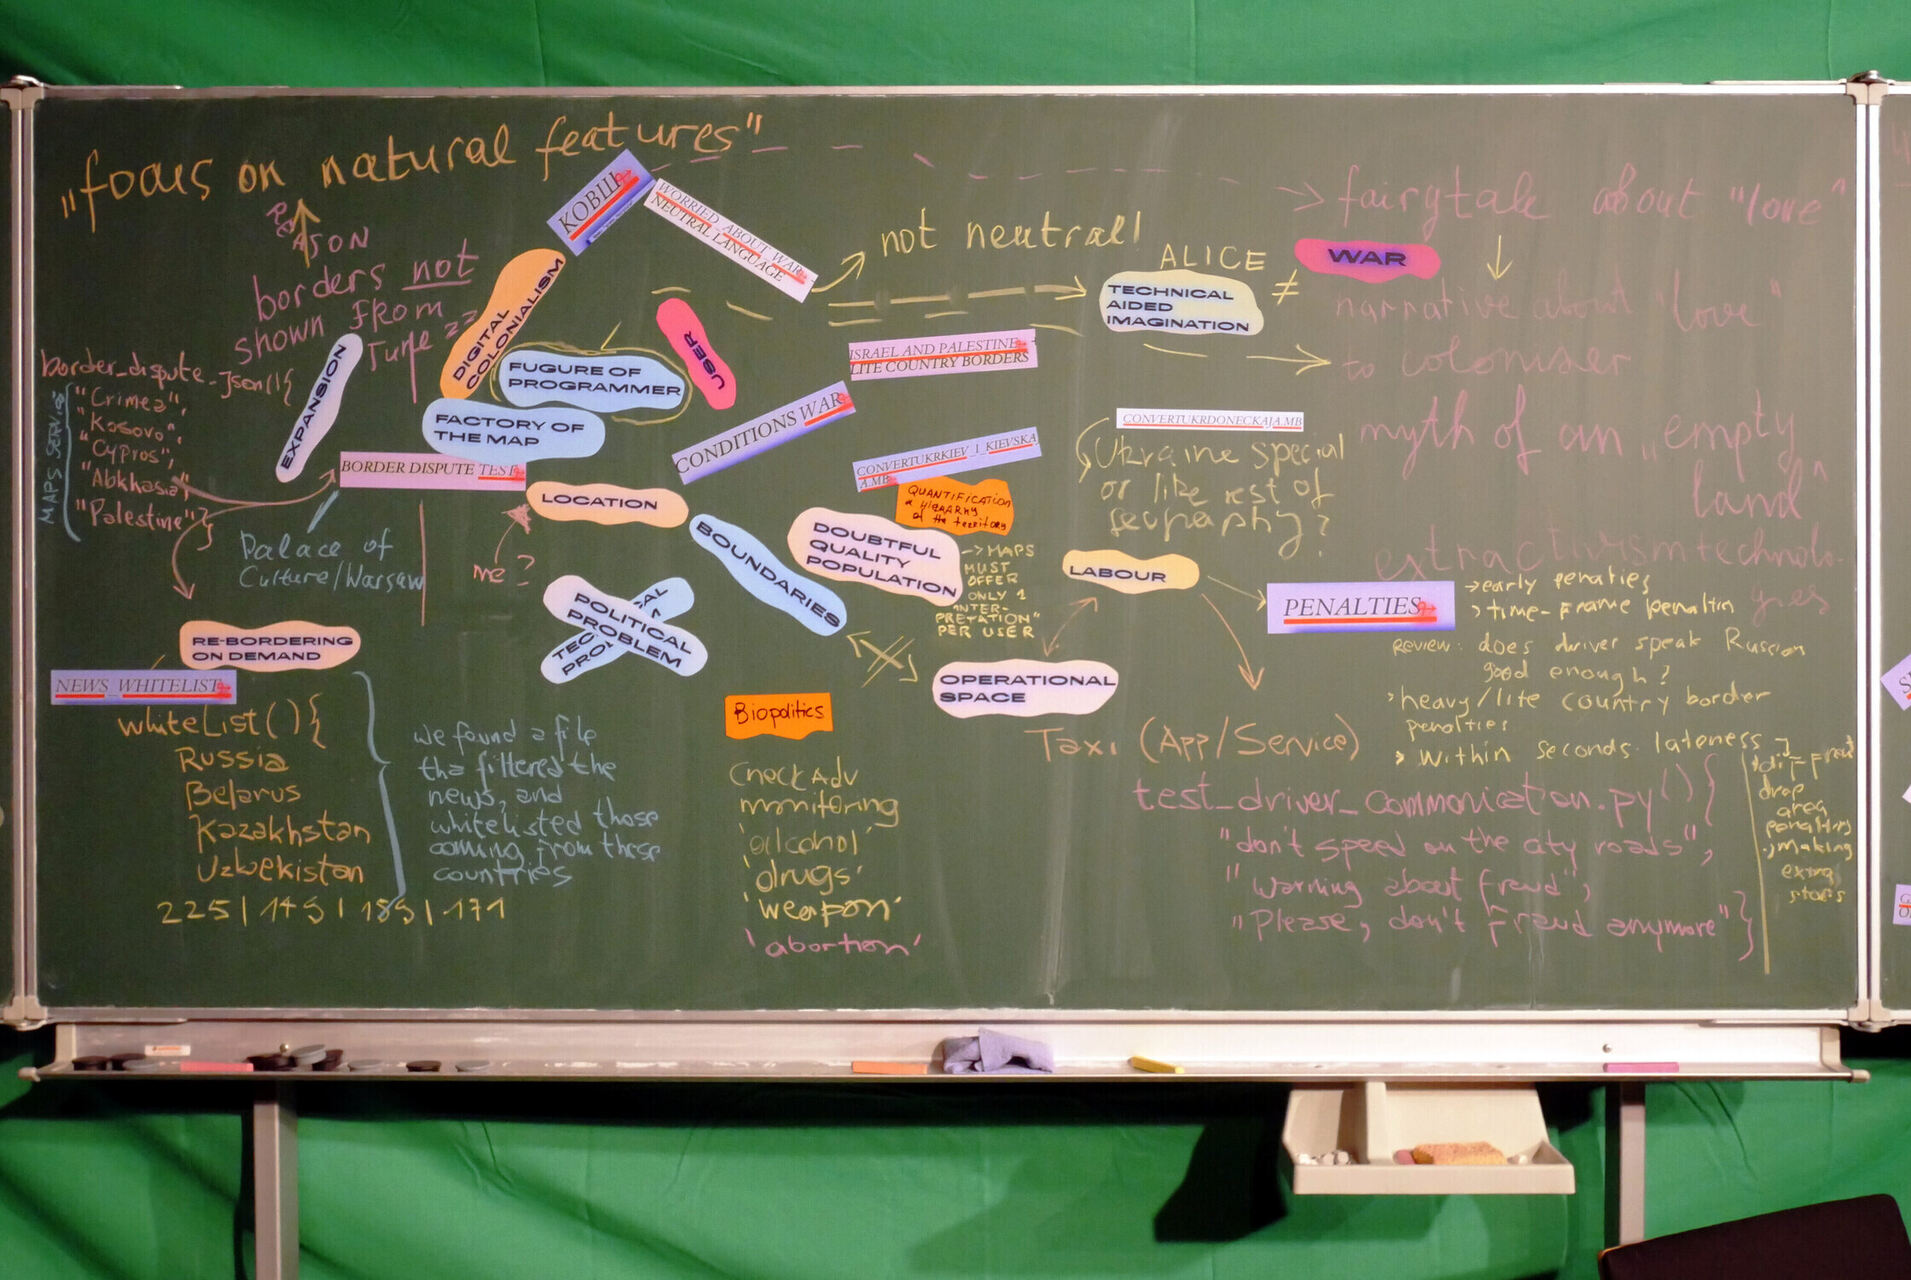 "focus on natural features"
REASON
borders not
shown from
June 22
border_dispute_Json(){
"Crimea",
"Kosovo",
"Cypros",
"Abkhasia",
"Palestine"}
MAPS SERVICE
EXPANSION
DIGITAL
COLONIALISM
KOBILL
WORRIED_ABOUT_WAR
NEUTRAL LANGUAGE
not neutral!
ALICE
TECHNICAL
AIDED
IMAGINATION
≠
WAR
fairytale about "love"
narrative about "love"
to coloniser
myth of an "empty
land"
extractivism technolo-
gies
USER
FUGURE OF
PROGRAMMER
FACTORY OF
THE MAP
BORDER DISPUTE TEST
Palace of
Culture/Warsaw
me?
LOCATION
CONDITIONS WAR
ISRAEL AND PALESTINE
LITE COUNTRY BORDERS
CONVERTUKRKIEV_1_KIEVSKA
A.MB
CONVERTUKRDONECKAJA.MB
Ukraine special
or like rest of
geography?
QUANTIFICATION
& HIERARHY
of the territory
DOUBTFUL
QUALITY
POPULATION
-> MAPS
MUST
OFFER
ONLY 1
"INTER-
PRETATION"
PER USER
BOUNDARIES
POLITICAL
PROBLEM
LABOUR
OPERATIONAL
SPACE
PENALTIES
early penalties
time-frame penaltin
REVIEW: does driver speak Russian
good enough?
heavy/lite country border
penalties
within seconds lateness
drop
area
penalties
making
extra
stops
Taxi (App/Service)
test_driver_communication.py(){
"don't speed on the city roads",
"warning about fraud",
"Please, don't fraud anymore"}
RE-BORDERING
ON DEMAND
NEWS_WHITELIST
whiteList(){
Russia
Belarus
Kazakhstan
Uzbekistan
225 | 149 | 159 | 171
we found a file
tha filtered the
news, and
whitelisted those
coming from these
countries
Biopolitics
Check Adv
monitoring
'alcohol'
'drugs'
'weapon'
'abortion'